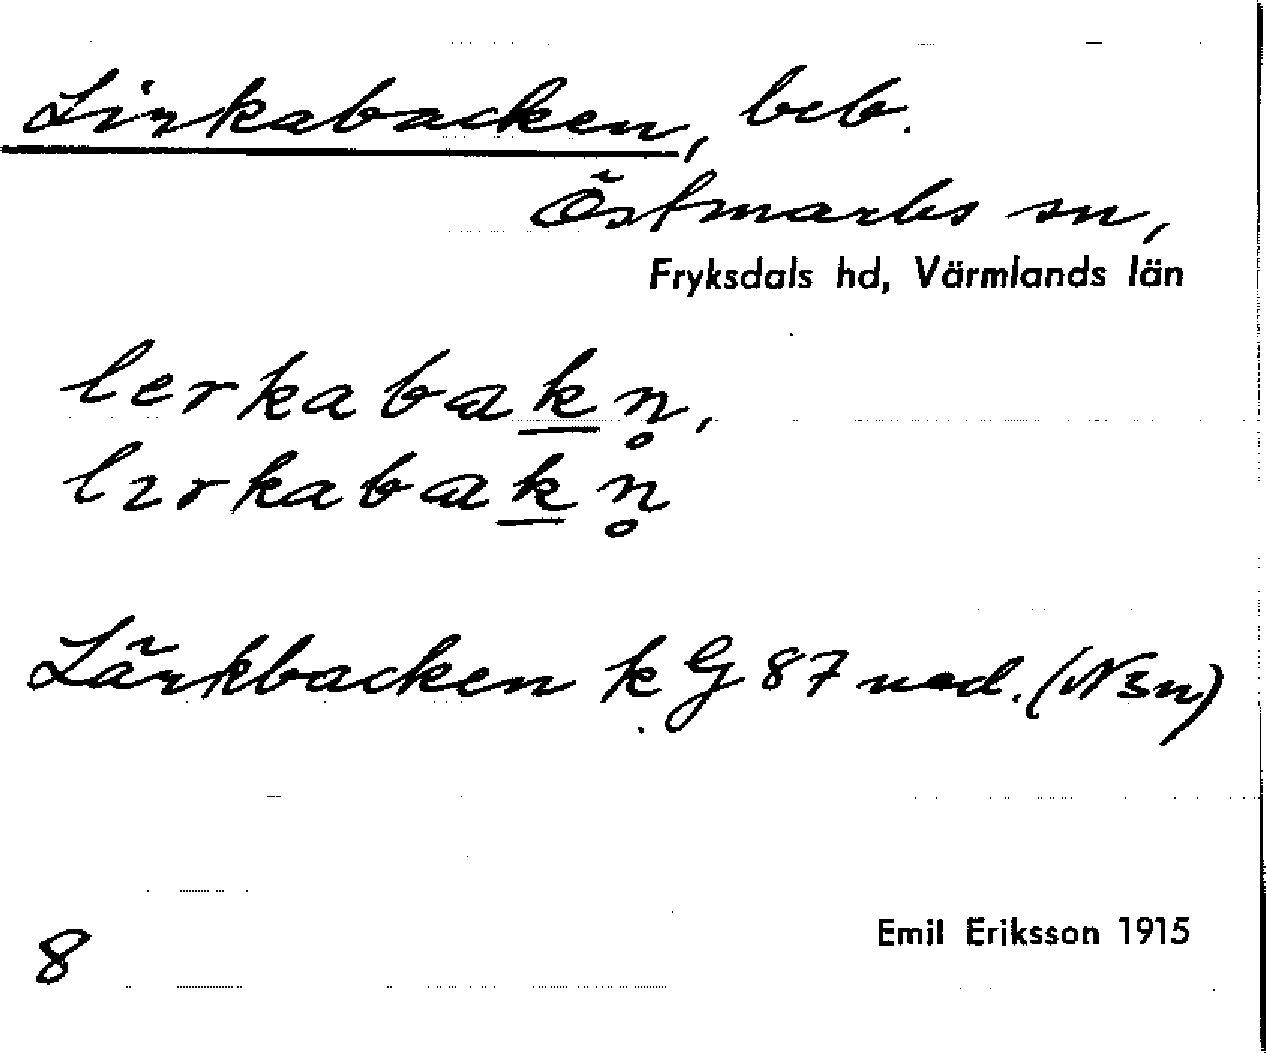 Lirkabacken, beb.
Östmarks sn,
Fryksdals hd, Värmlands län
lerkabakn̥,
lırkabakn̥
Lärkbacken k G 87 ned. (N3n)
8
Emil Eriksson 1915